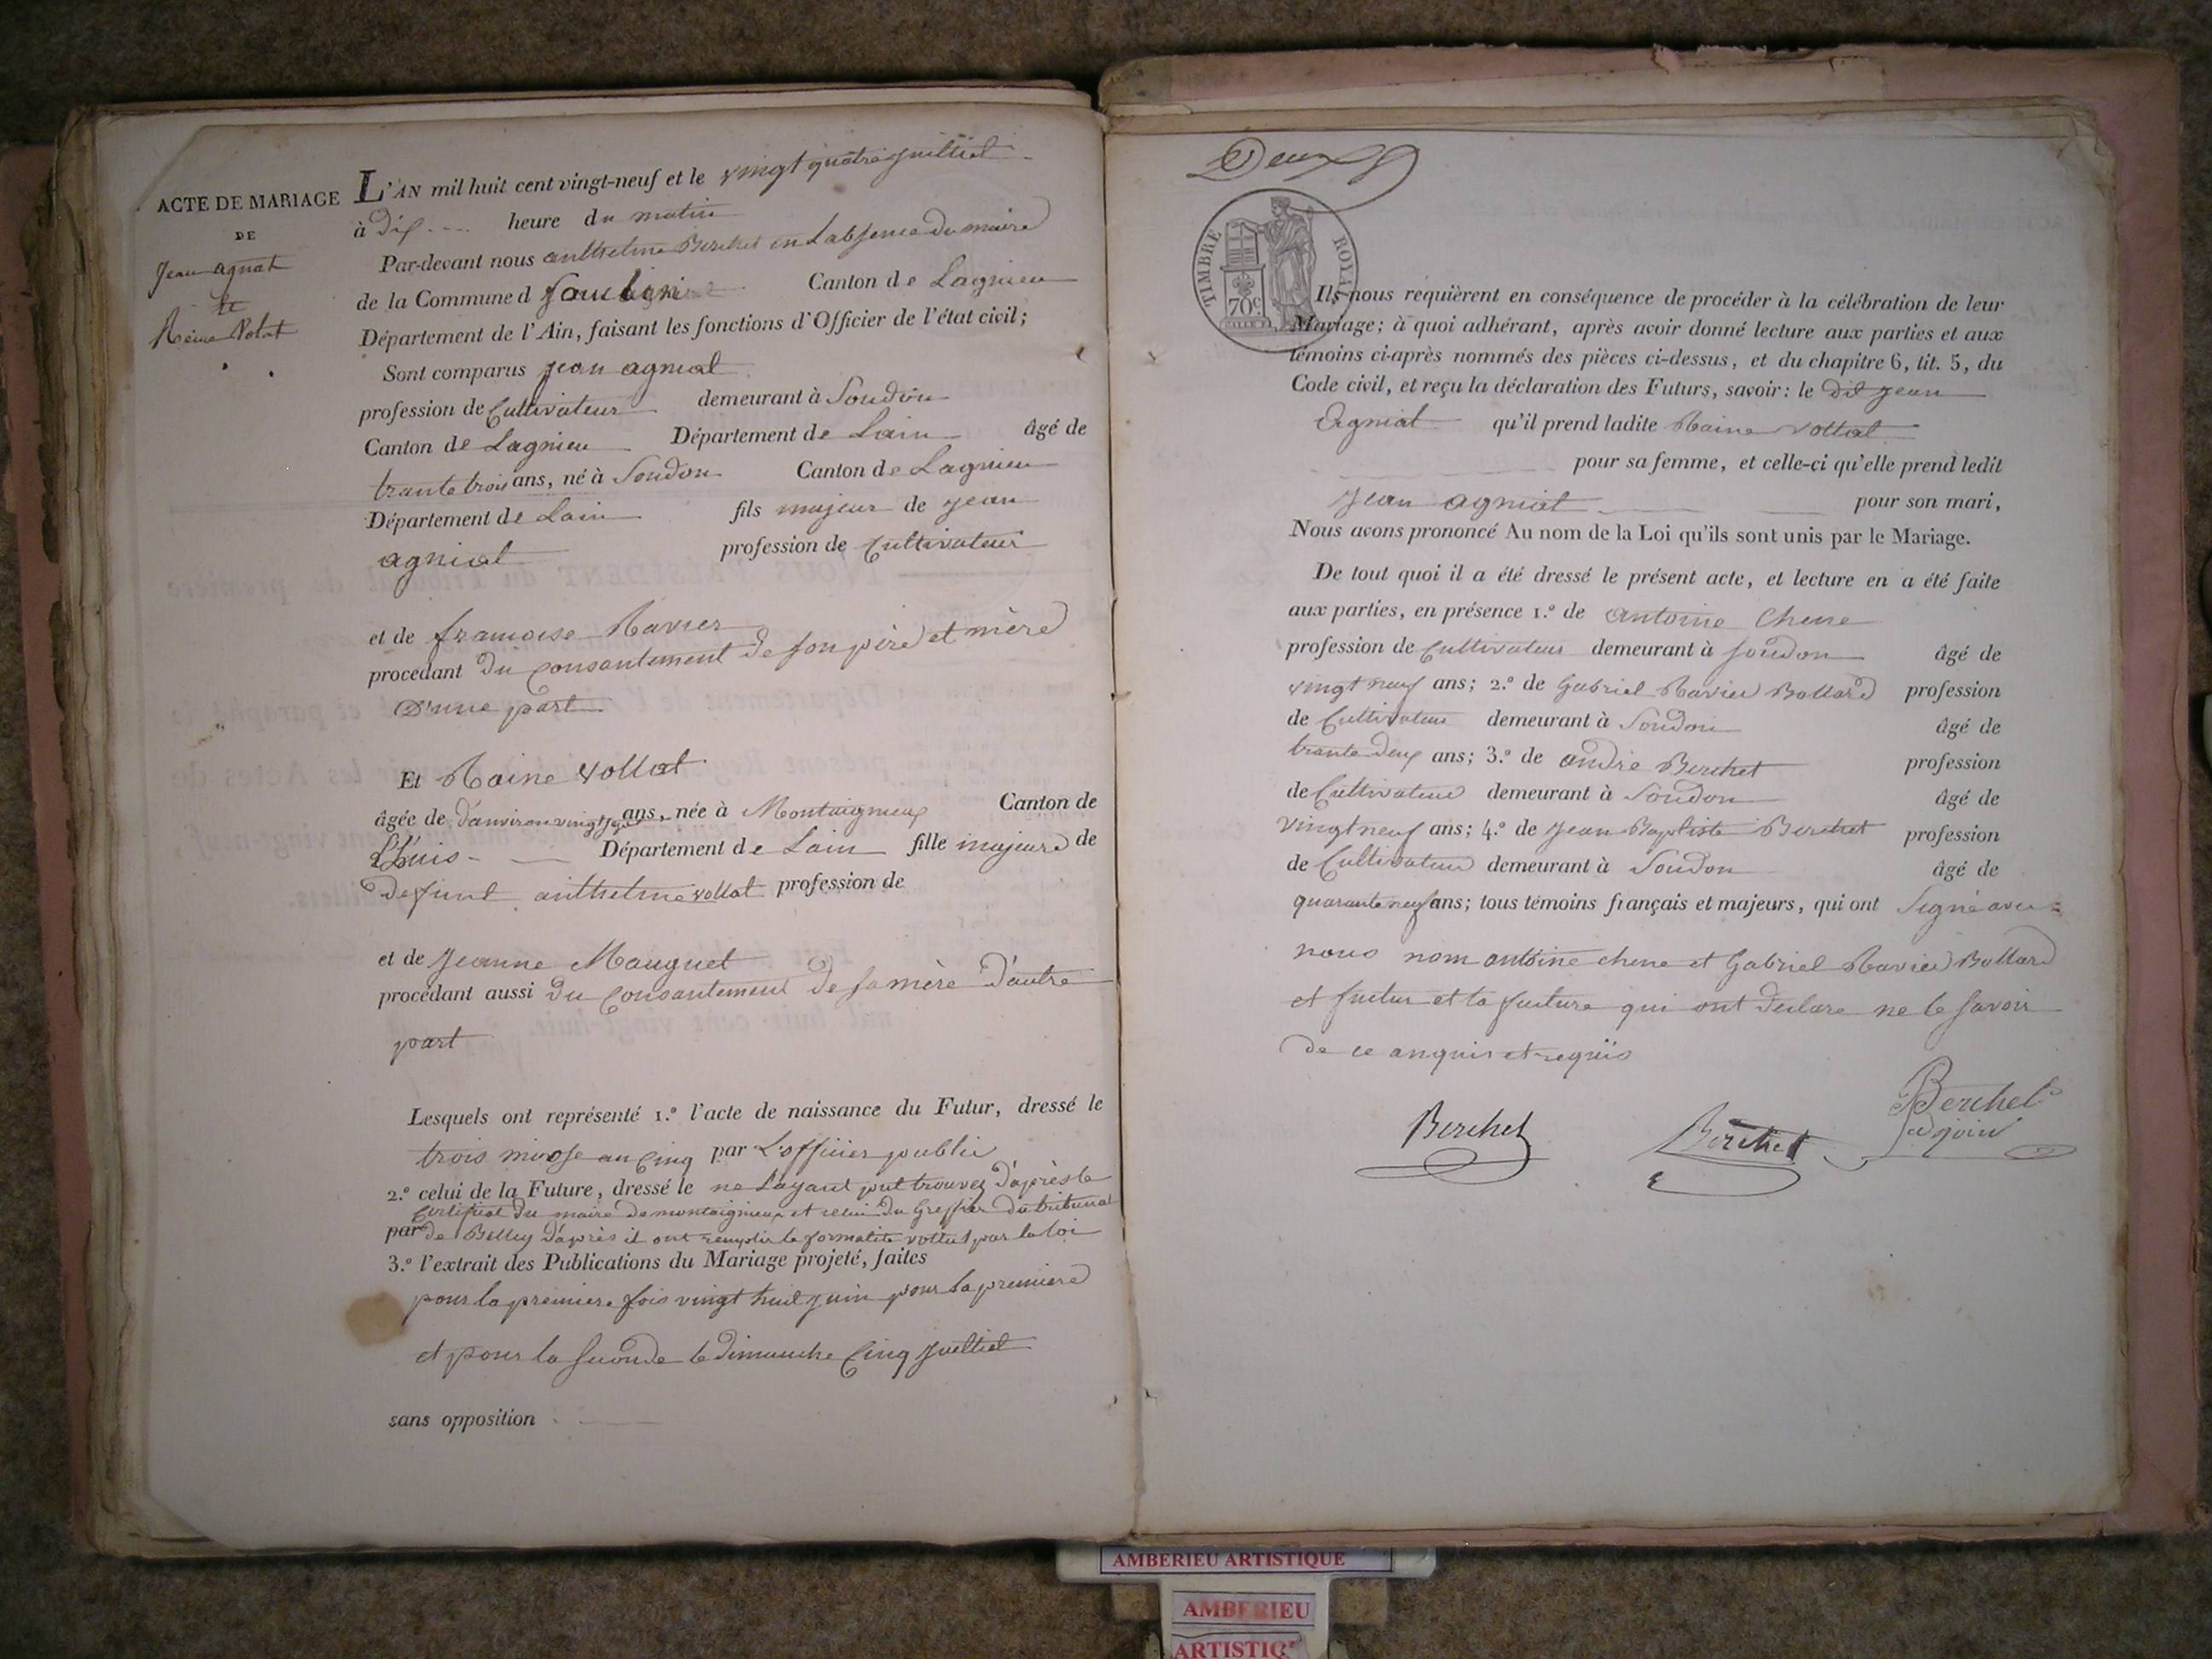 ACTE DE MARIAGE
DE
Jean agnat
et
Reine Volat
L'AN mil huit cent vingt-neuf et le vingt quatre juilliet
à dix heure du matin
Par-devant nous anthelme Berchet en Labsence du maire
de la Commune d Canton de Lagnieu
Département de l'Ain, faisant les fonctions d'Officier de l'état civil;
Sont comparus jean agniat
profession de Cultivateur demeurant à Soudon
Canton de Lagnieu Département de Lain âgé de
trante trois ans, né à Soudon Canton de Lagnieu
Département de Lain fils majeur de jean
agniat profession de Cultivateur
et de francoise Ravier
procédant du consantement de son père et mère
D'une part
Et Raine vollat
âgée de d'anviron vingt ans, née à Montaignieux Canton de
L'huis Département de Lain fille majeure de
defunt anthelme vollat profession de
et de jeanne Mauguet
procédant aussi du consantement de sa mère d'autre
part
Lesquels ont représenté 1.º l'acte de naissance du Futur, dressé le
trois nivose an Cinq par L'officier public
2.º celui de la Future, dressé le ne Layant put trouvez d'après le
Certificat du maire de montaignieux et celui du Greffier du tribunal
par de Belley d'après il ont remplir la formalite vollut par la loi
3.º l'extrait des Publications du Mariage projeté, faites
pour la premiere fois vingt huit juin pour la premiere
et pour la seconde le dimanche Cinq juilliet
sans opposition
Deux
TIMBRE ROYAL
70c
Ils nous requièrent en conséquence de procéder à la célébration de leur
Mariage; à quoi adhérant, après avoir donné lecture aux parties et aux
témoins ci-après nommés des pièces ci-dessus, et du chapitre 6, tit. 5, du
Code civil, et reçu la déclaration des Futurs, savoir: le dit jean
Agniat qu'il prend ladite Raine vollat
pour sa femme, et celle-ci qu'elle prend ledit
jean agniat pour son mari,
Nous avons prononcé Au nom de la Loi qu'ils sont unis par le Mariage.
De tout quoi il a été dressé le présent acte, et lecture en a été faite
aux parties, en présence 1.º de antoine Chene
profession de Cultivateur demeurant à Soudon âgé de
vingt neuf ans; 2.º de Gabriel Ravier Bollard profession
de Cultivateur demeurant à Soudon âgé de
trante deux ans; 3.º de andré Berchet profession
de Cultivateur demeurant à Soudon âgé de
vingt neuf ans; 4.º de jean Baptiste Berchet profession
de Cultivateur demeurant à Soudon âgé de
quarante neuf ans; tous témoins français et majeurs, qui ont Signé avec
nous nom antoine chene et Gabriel Ravier Bollard
et futur et la future qui ont declare ne le savoir
de ce anquis et requis
Berchet Berchet Berchet
adjoint
AMBERIEU ARTISTIQUE
AMBERIEU
ARTISTIQ